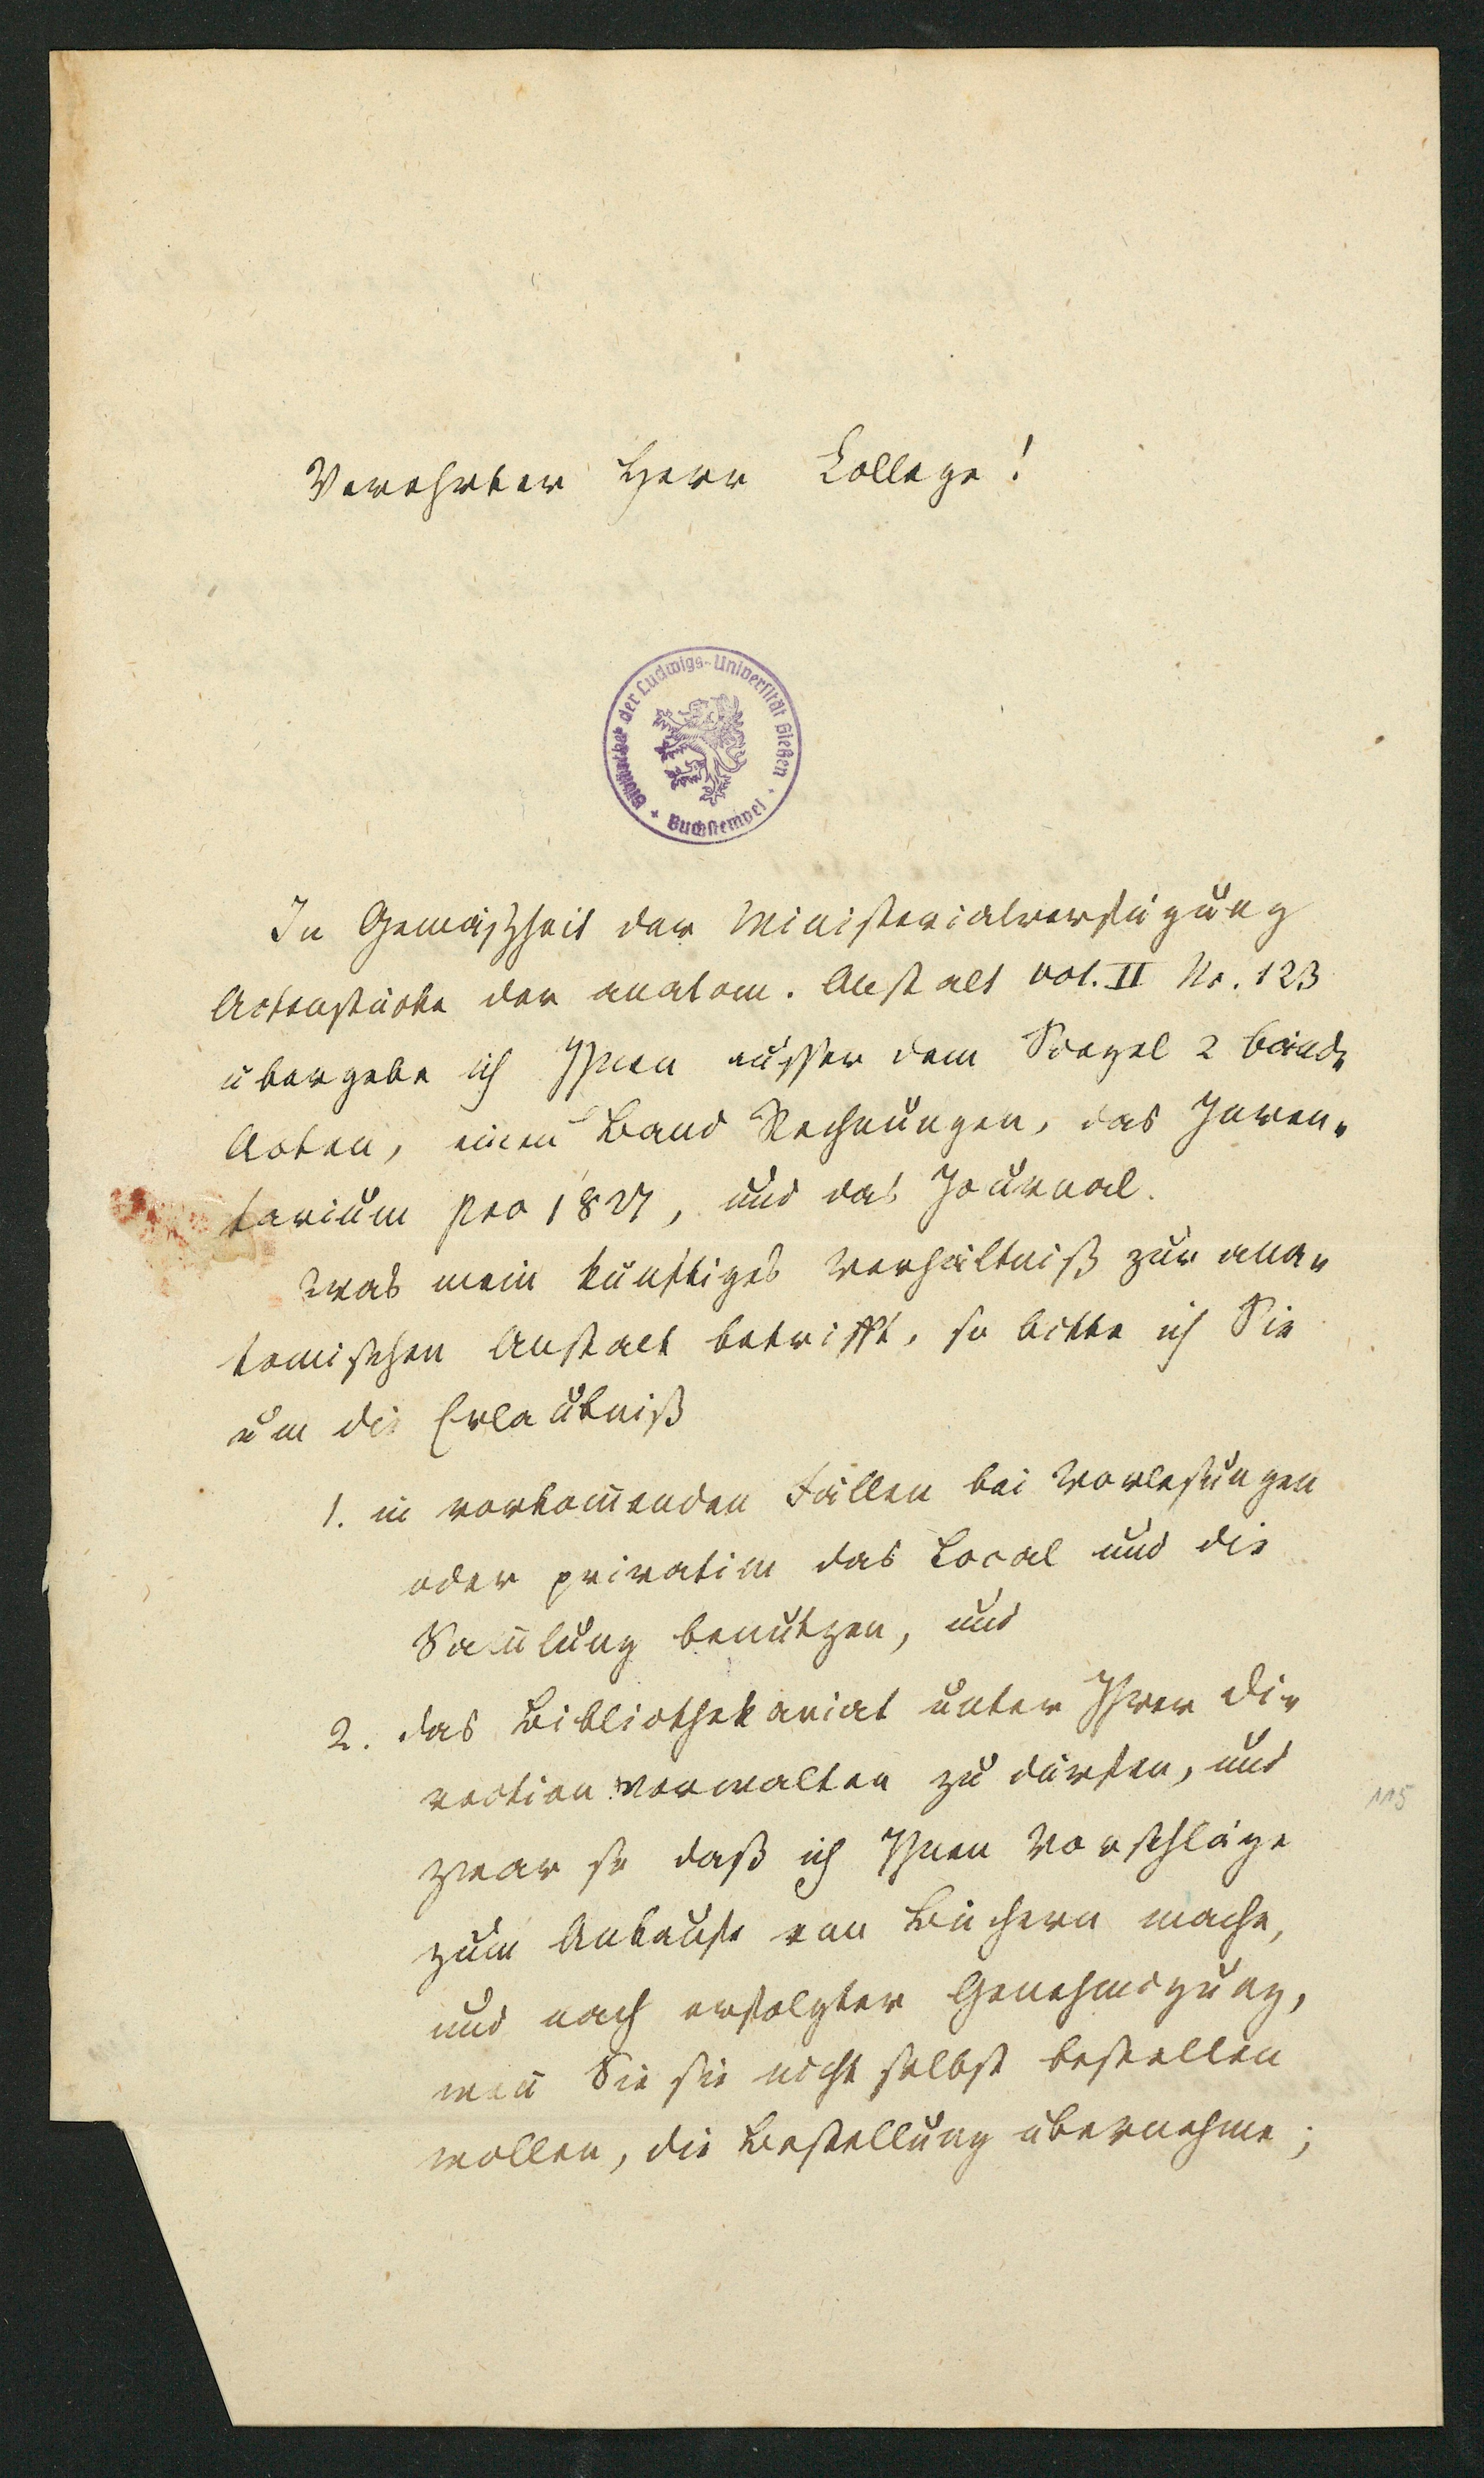 Verehrter Herr College!
Bibliothek der Ludwigs-Universität Gießen
Buchstempel
In Gemäszheit der Ministerialverfügung
Actenstücke der anatom. Anstalt vol. II No. 123
übergebe ich Ihnen ausser dem Siegel 2 Bände
Acten, einen Band Rechnungen, das Inven-
tarium pro 1827, und das Journal.
Was mein künftiges Verhältniß zur ana-
tomischen Anstalt betrifft, so bitte ich Sie
um die Erlaubniß
1. in vorkom̅enden Fällen bei Vorlesungen
oder privatim das Local und die
Sam̅lung benutzen, und
2. das Bibliothekariat unter Ihrer Di-
rection verwalten zu dürfen, und
zwar so daß ich Ihnen Vorschläge
zum Ankaufe von Büchern mache,
und nach erfolgter Genehmigung,
wen̅ Sie sie nicht selbst bestellen
wollen, die Bestellung übernehme;
115